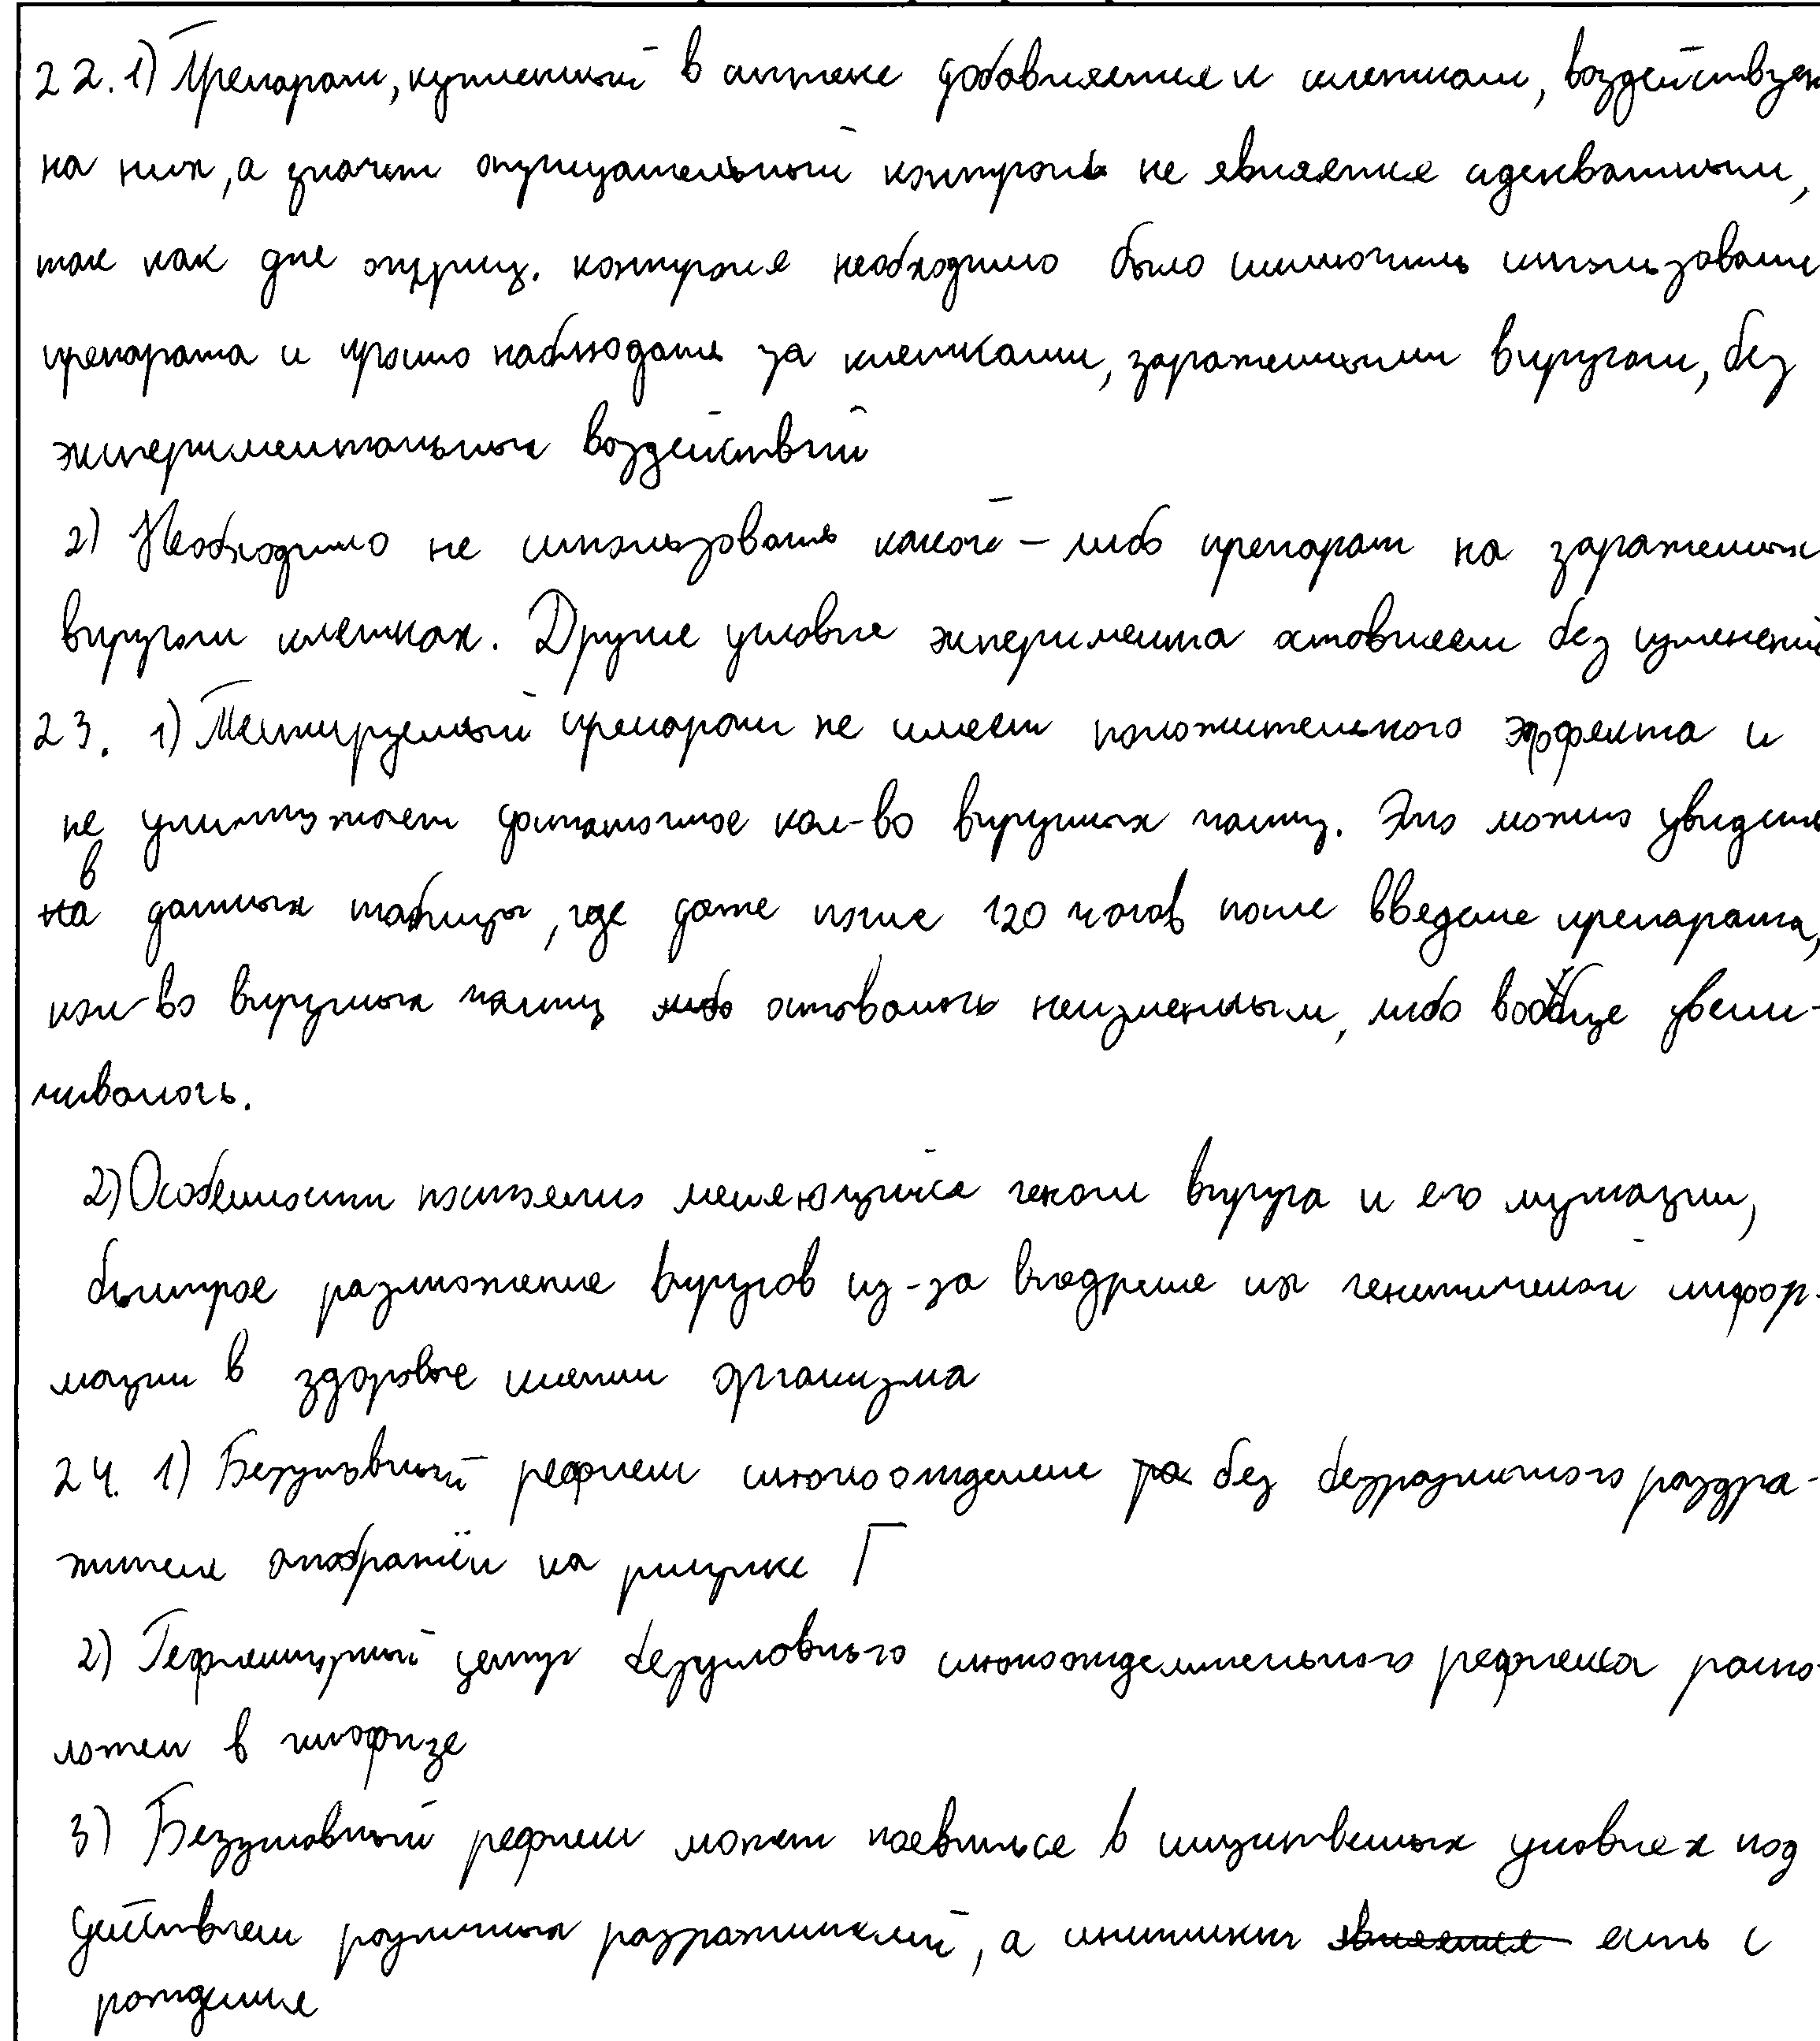 22. 1) Препарат, купленный в аптеке добавляется к клеткам, воздействует
на них, а значит отрицательный контроль не является адекватным,
так как для отриц. контроля необходимо было исключить использование
препарата и просто наблюдать за клетками, зараженными вирусом, без
экспериментальных воздействий
2) Необходимо не использовать какой-либо препарат на зараженных
вирусом клетках. Другие условия эксперимента оставляем без изменений
23. 1) Тестируемый препарат не имеет положительного эффекта и
не уничтожает достаточное кол-во вирусных частиц. Это можно увидеть
в данных таблицы, где даже после 120 часов после введения препарата,
кол-во вирусных частиц оставалось неизменным, либо вообще увели-
чивалось.
2) Особенности постоянно меняющийся геном вируса и его мутации,
быстрое размножение вирусов из-за внедрения их генетической инфор-
мации в здоровые клетки организма
24. 1) Безусловный рефлекс слюноотделения без безразличного раздра-
жителя отображён на рисунке Г
2) Рефлекторный центр безусловного слюноотделительного рефлекса распо-
ложен в гипофизе
3) Безусловный рефлекс может появиться в искусственных условиях под
действием различных разражителей, а инстинкт есть с
рождения